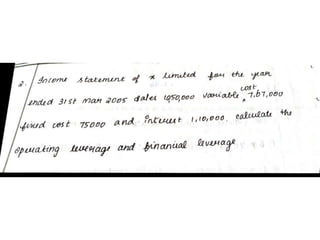 2. Income statement of x limited for the year
ended 31st mar 2005 sales 1050,000 variable cost 7,67,000
fixed cost 75000 and Interest 1,10,000, calculate the
operating leverage and financial leverage